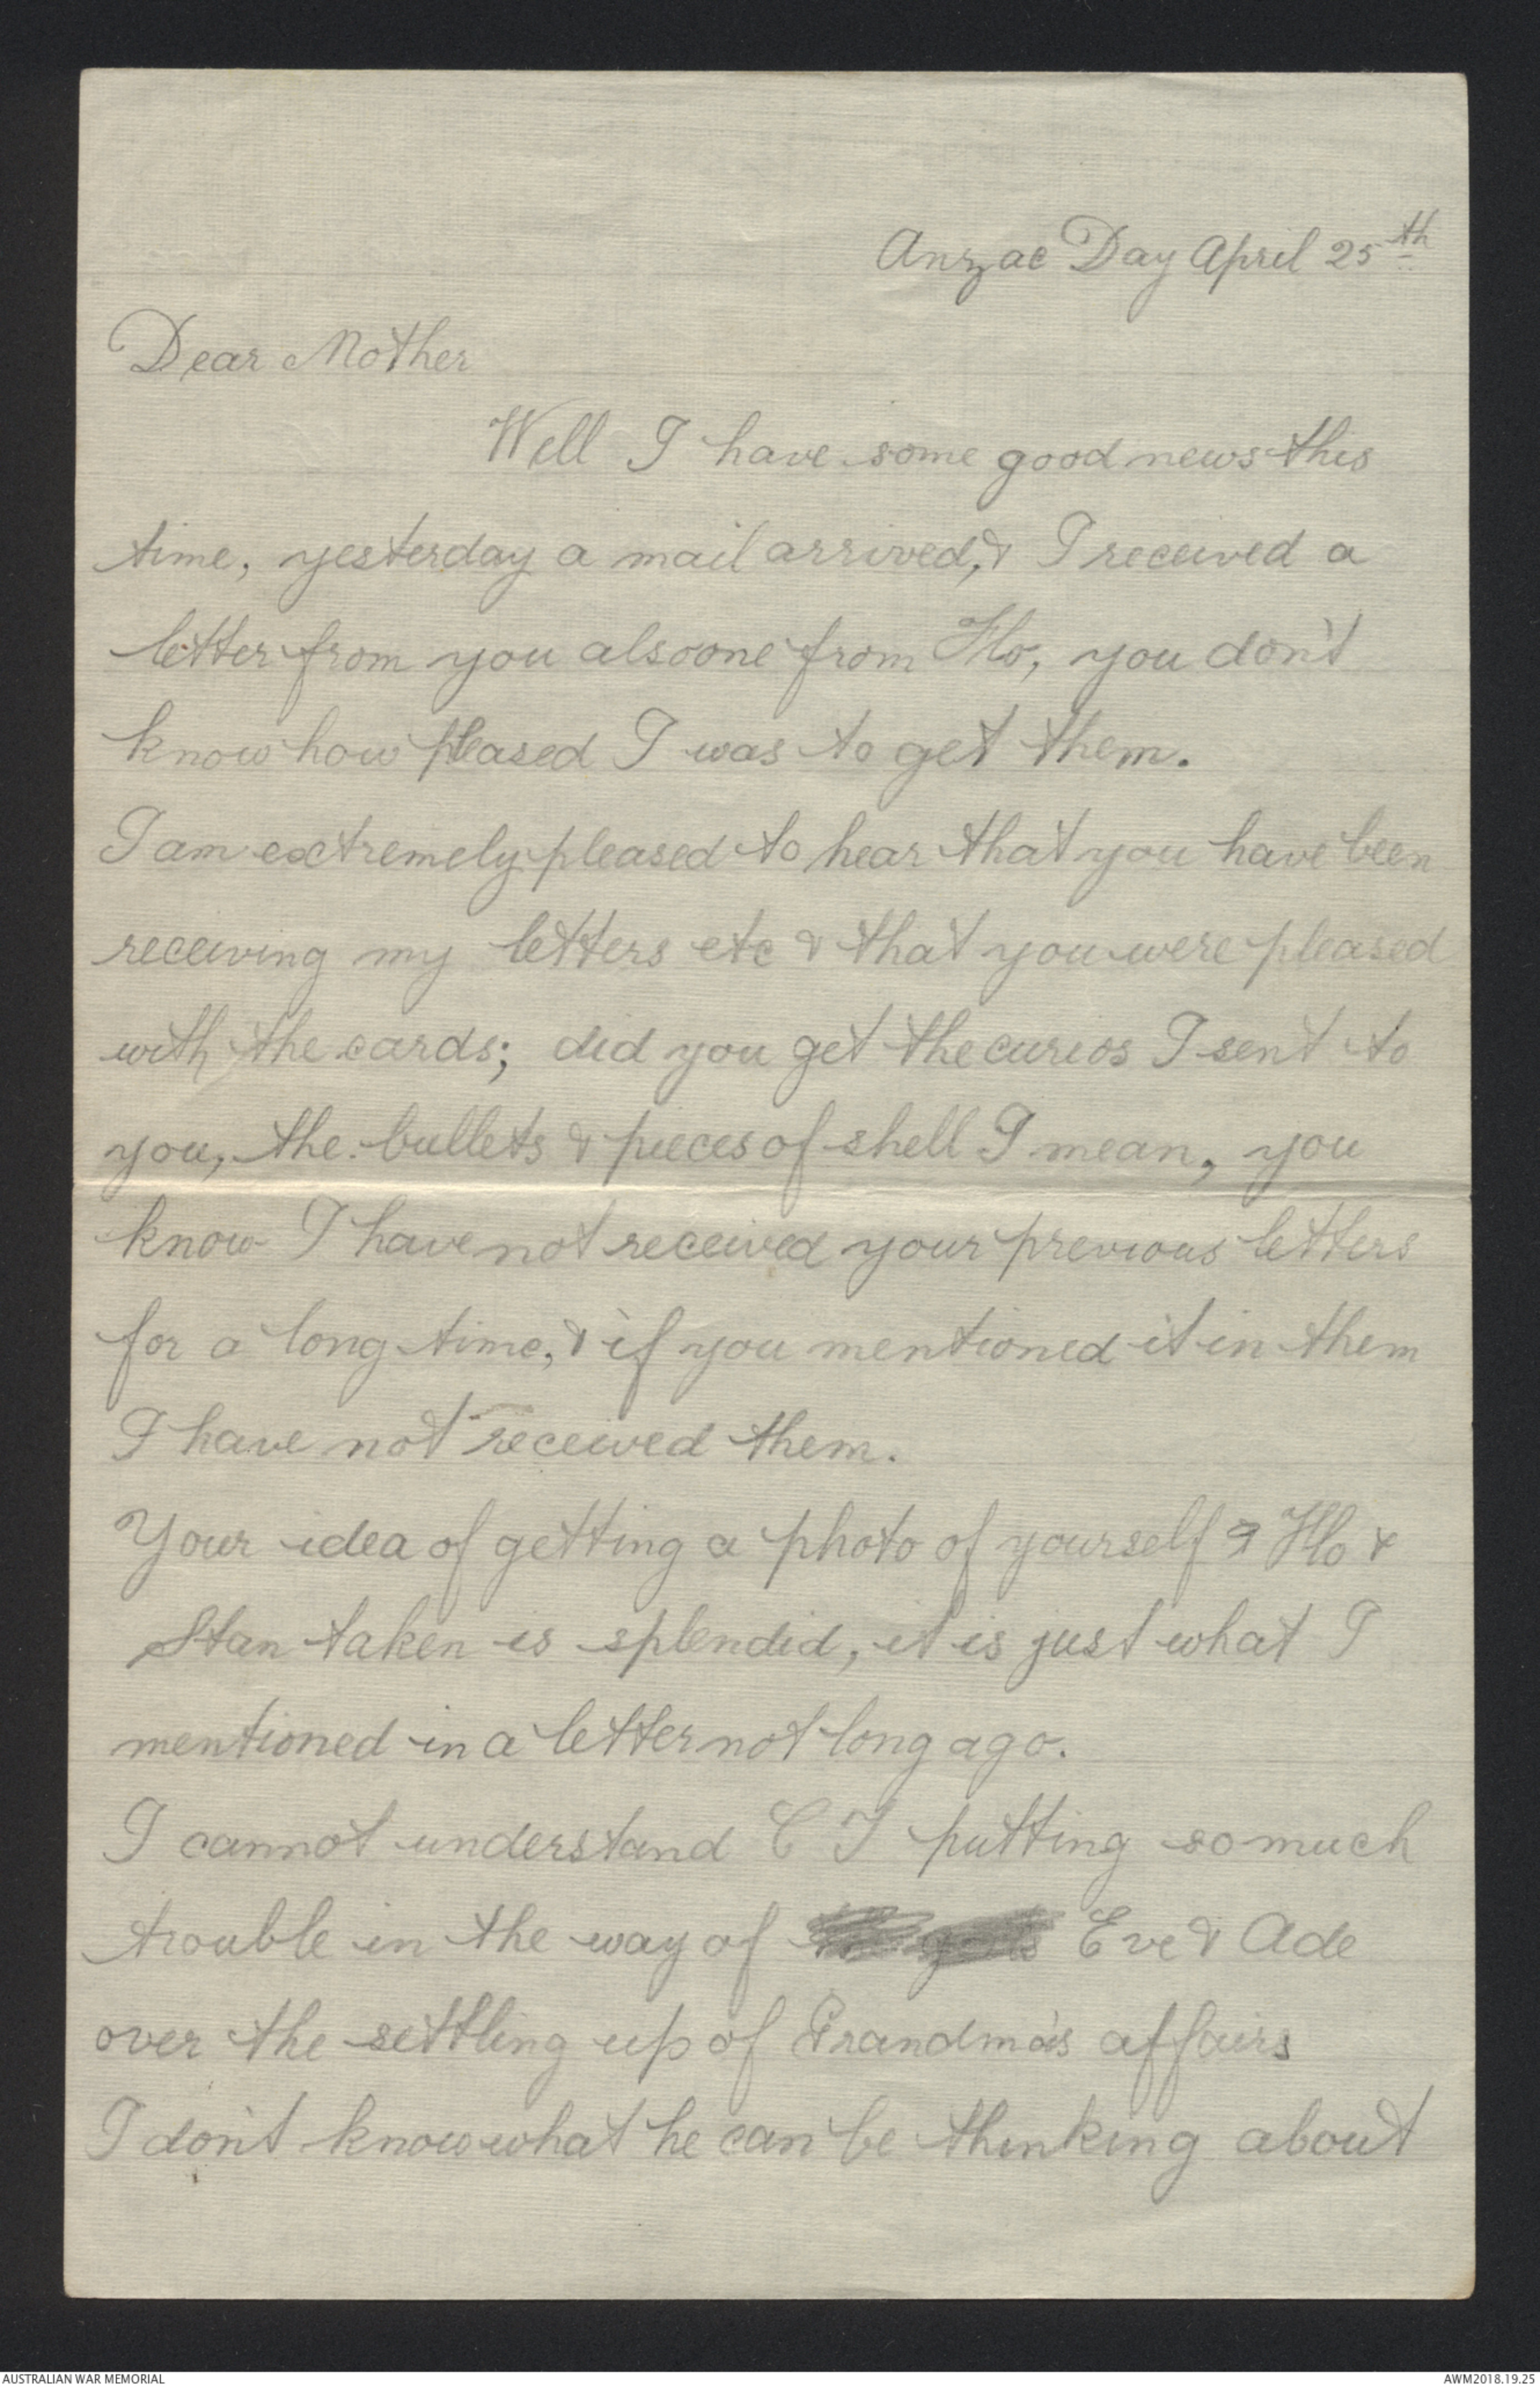 Anzac Day April 25th
Dear Mother
Well I have some good news this
time, yesterday a mail arrived, & I received a
letter from you also one from Flo, you don't
know how pleased I was to get them.
I am extremely pleased to hear that you have been
receiving my letters etc & that you were pleased
with the cards; did you get the curios I sent to
you, the bullets & pieces of shell I mean, you
know I have not received your previous letters
for a long time, & if you mentioned it in them
I have not received them.
Your idea of getting a photo of yourself & Flo &
Stan taken is splendid, it is just what I
mentioned in a letter not long ago.
I cannot understand C J putting so much
trouble in the way of Eve & Ade
over the settling up of Grandma's affairs
I don't know what he can be thinking about
AUSTRALIAN WAR MEMORIAL
AWM2018.19.25